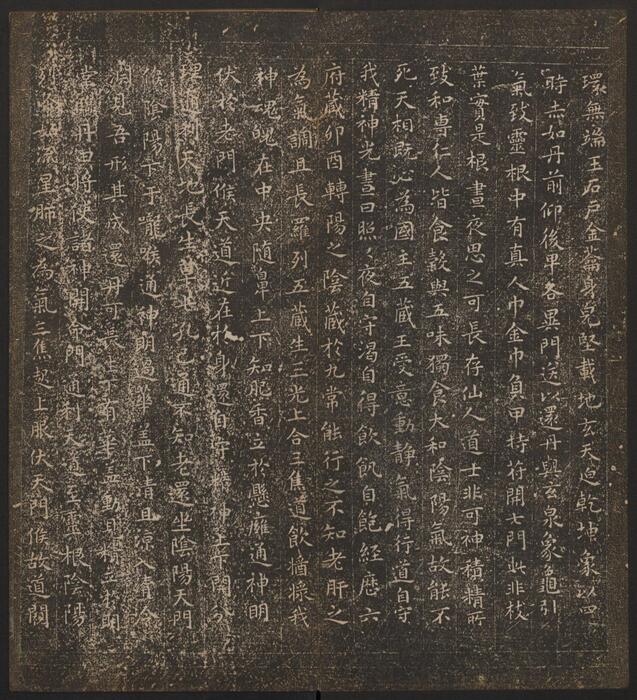 環無端玉石戶金籥身完堅載地玄天迫乾坤象以四
時赤如丹前仰後卑各異門送以還丹與玄泉象龜引
氣致靈根中有真人巾金巾負甲持符開七門此非枝
葉實是根晝夜思之可長存仙人道士非可神積精所
致和專仁人皆食穀與五味獨食大和陰陽氣故能不
死天相既心為國主五藏王受意動靜氣得行道自守
我精神光晝日照照夜自守渴自得飲飢自飽經歷六
府藏卯酉轉陽之陰藏於九常能行之不知老肝之
為氣調且長羅列五藏生三光上合三焦道飲猶掾我
神魂魄在中央隨鼻上下知肥香立於懸膺通神明
伏於老門候天道近在於身還自守精神上下開分
理通利天地長生草七孔已通不知老還坐陰陽天門
候陰陽下于嚨喉通神明過華蓋下清且涼入清冷
淵見吾形其成還丹可長生下有華蓋動見精立於明
堂臨丹田將使諸神開命門通利天道至靈根陰陽
列如流星肺之為氣三焦起上服伏天門候故道闚